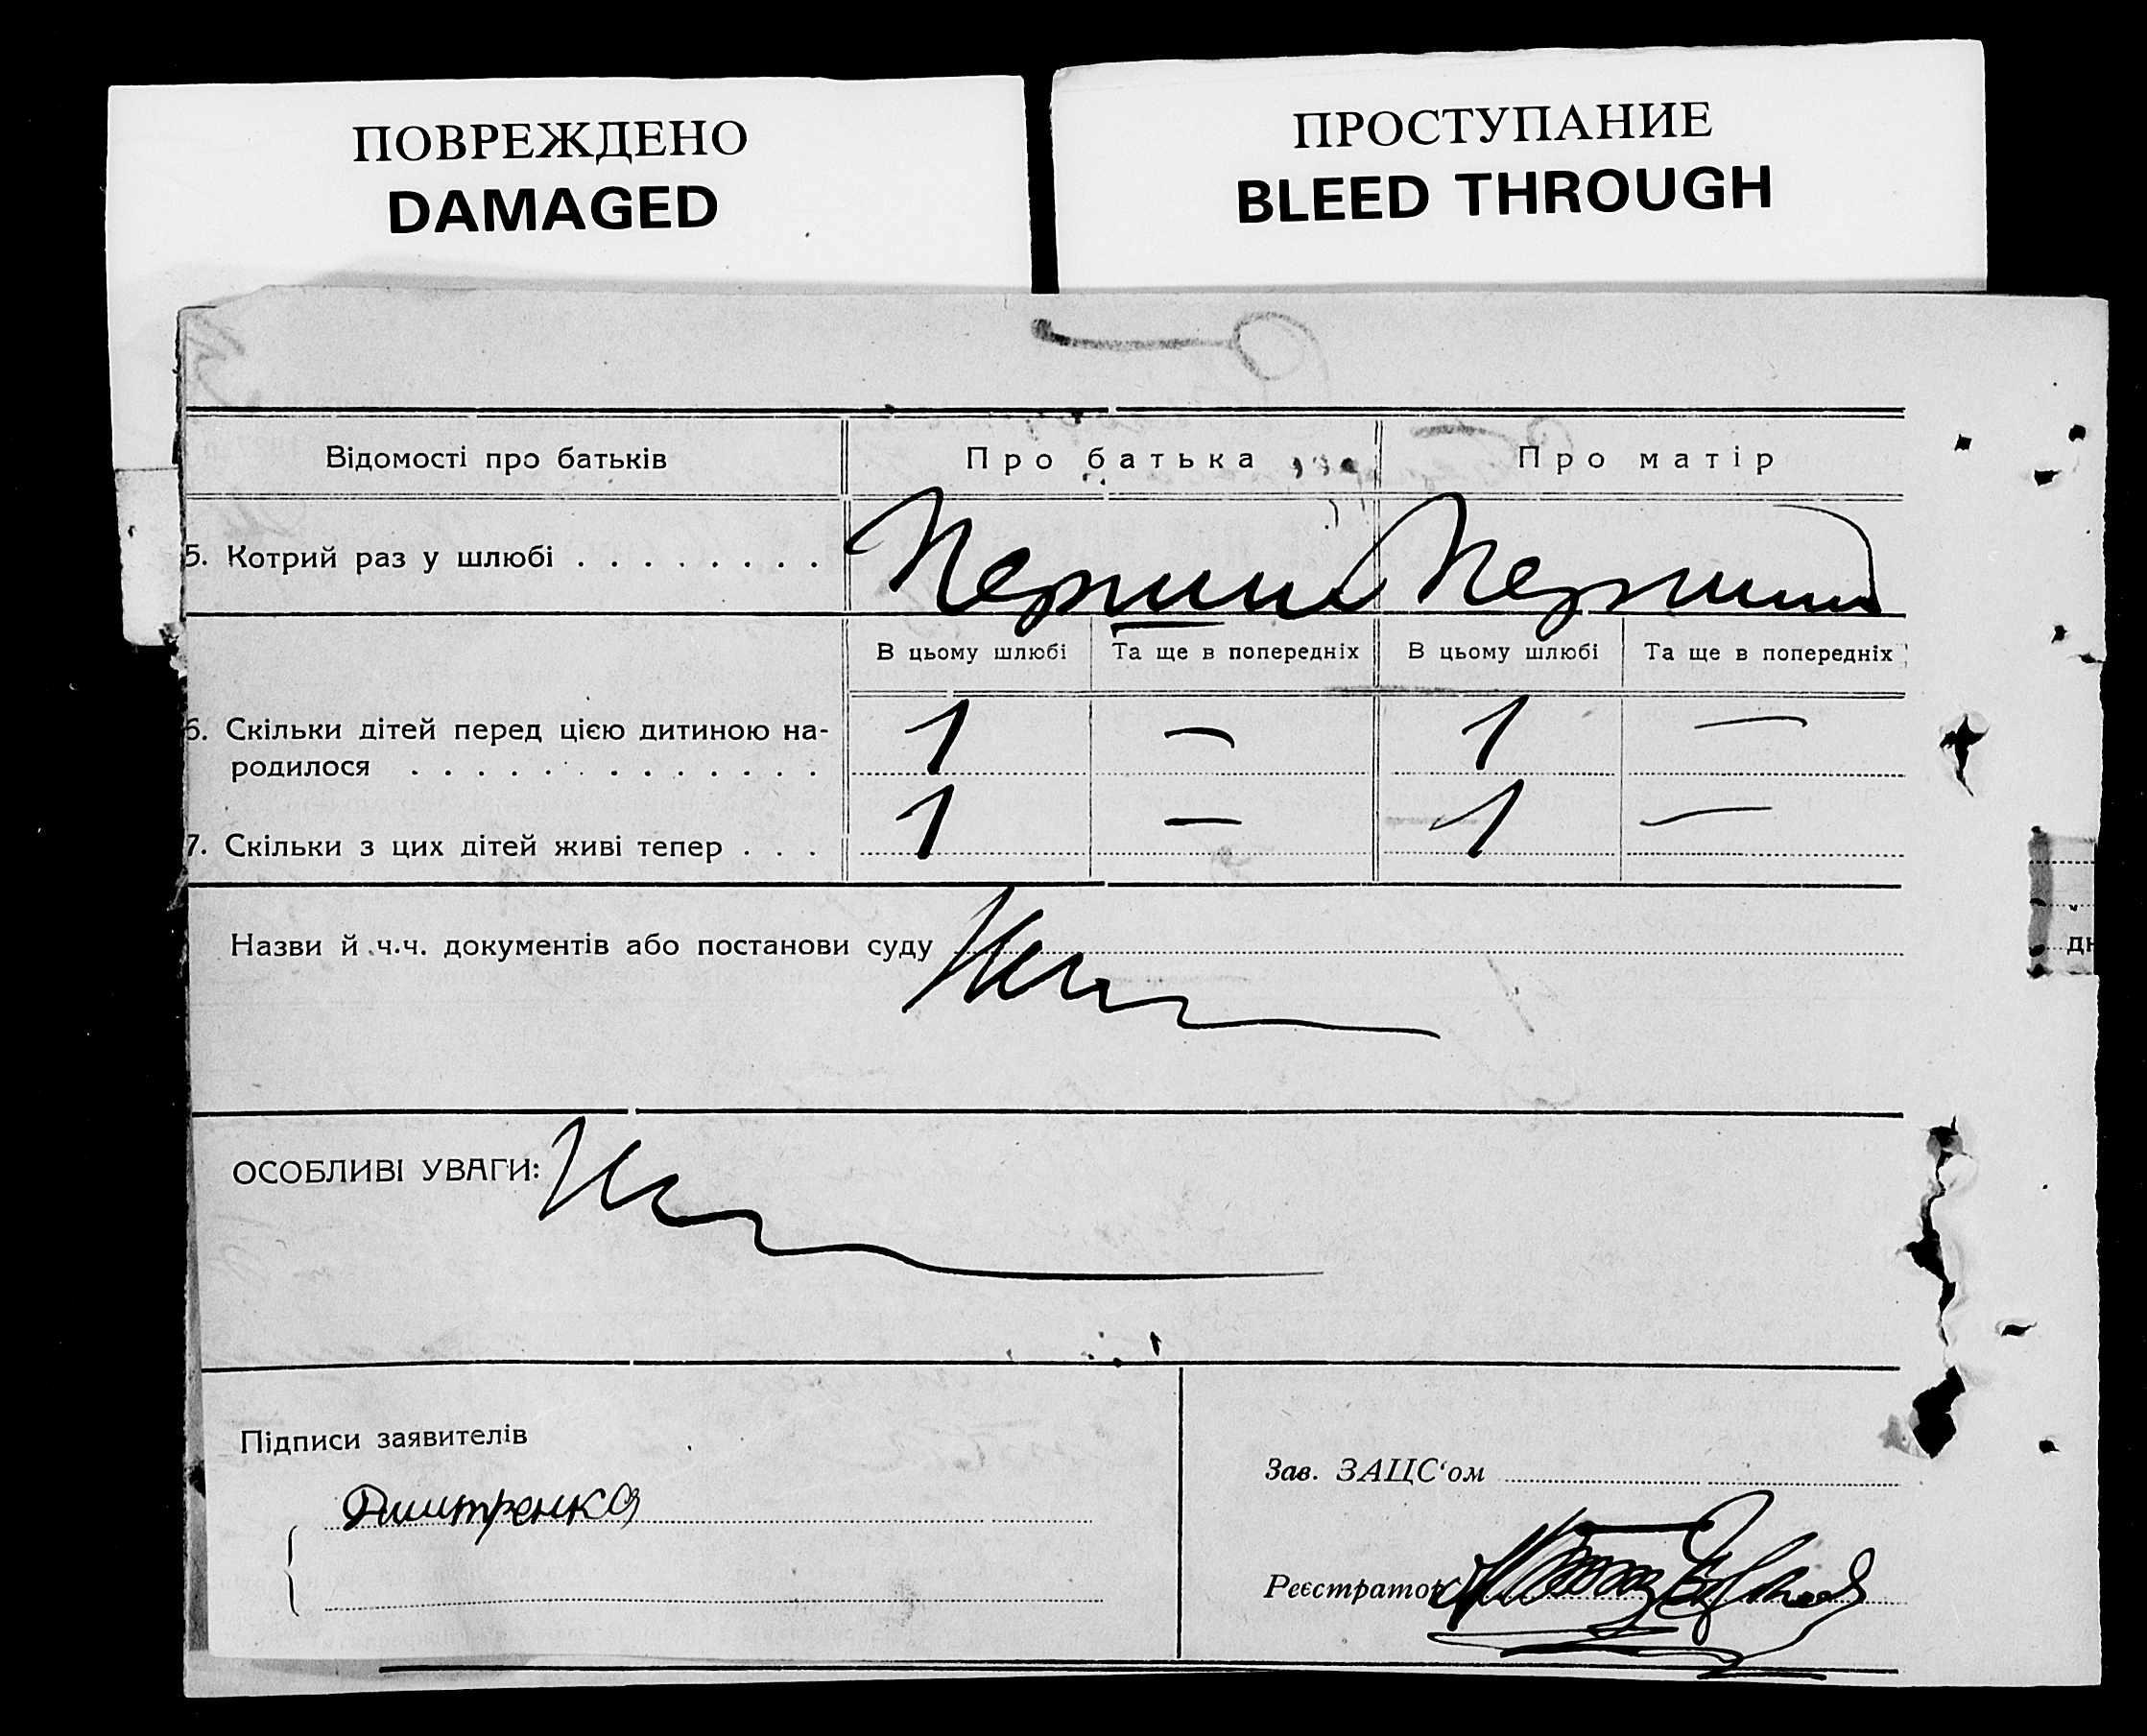 ПОВРЕЖДЕНО
DAMAGED
ПРОСТУПАНИЕ
BLEED THROUGH
Відомості про батьків
Про батька
Про матір
5. Котрий раз у шлюбі . . . . . . . .
Перший
Перший
В цьому шлюбі
Та ще в попередніх
В цьому шлюбі
Та ще в попередніх
6. Скільки дітей перед цією дитиною на-
родилося . . . . . . . . . . . . .
1 — 1 —
7. Скільки з цих дітей живі тепер . . .
1 — 1 —
Назви й ч.ч. документів або постанови суду
ОСОБЛИВІ УВАГИ:
Підписи заявителів
Дмитренко
Зав. ЗАЦС‘ом
Реєстратор
дн